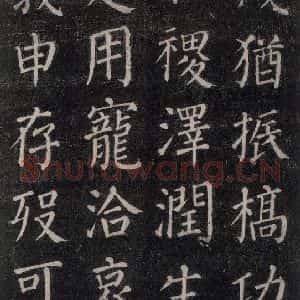 猶振槁功
禝澤潤生
用寵洽哀
申存歿可
Shufawang.CN